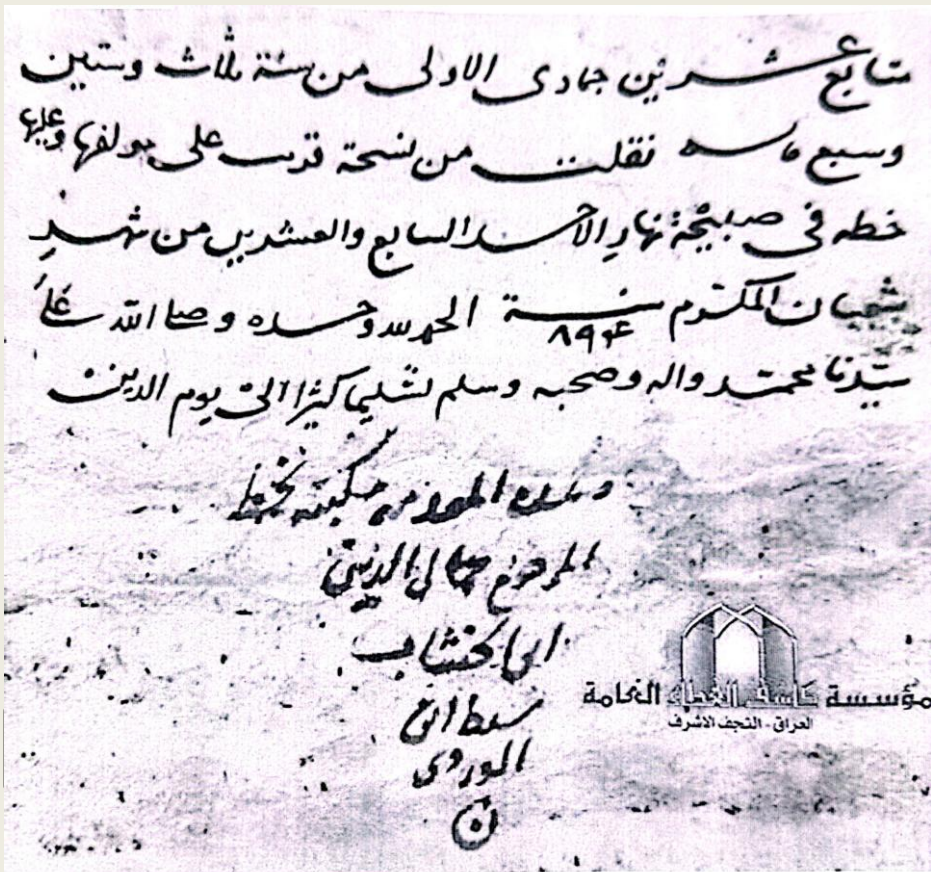 سابع عشرين جمادى الاولى من سنة ثلاث وستين
وسبع مائه نقلت من نسخة قرت على مولفها وعليها
خطه فى صبيحة نهار الأحد السابع والعشرين من شهر
شعبان المكرم سنة ٨٩٤ الحمد لله وحده وصلى الله على
سيّدنا محمّد واله وصحبه وسلم تسليما كثيرا الى يوم الدين
بخط
المرحوم جمال الدين
ابن الخشاب
سبط ابن
الوردى
ن
مؤسسة كاشف الغطاء العامة
العراق - النجف الاشرف